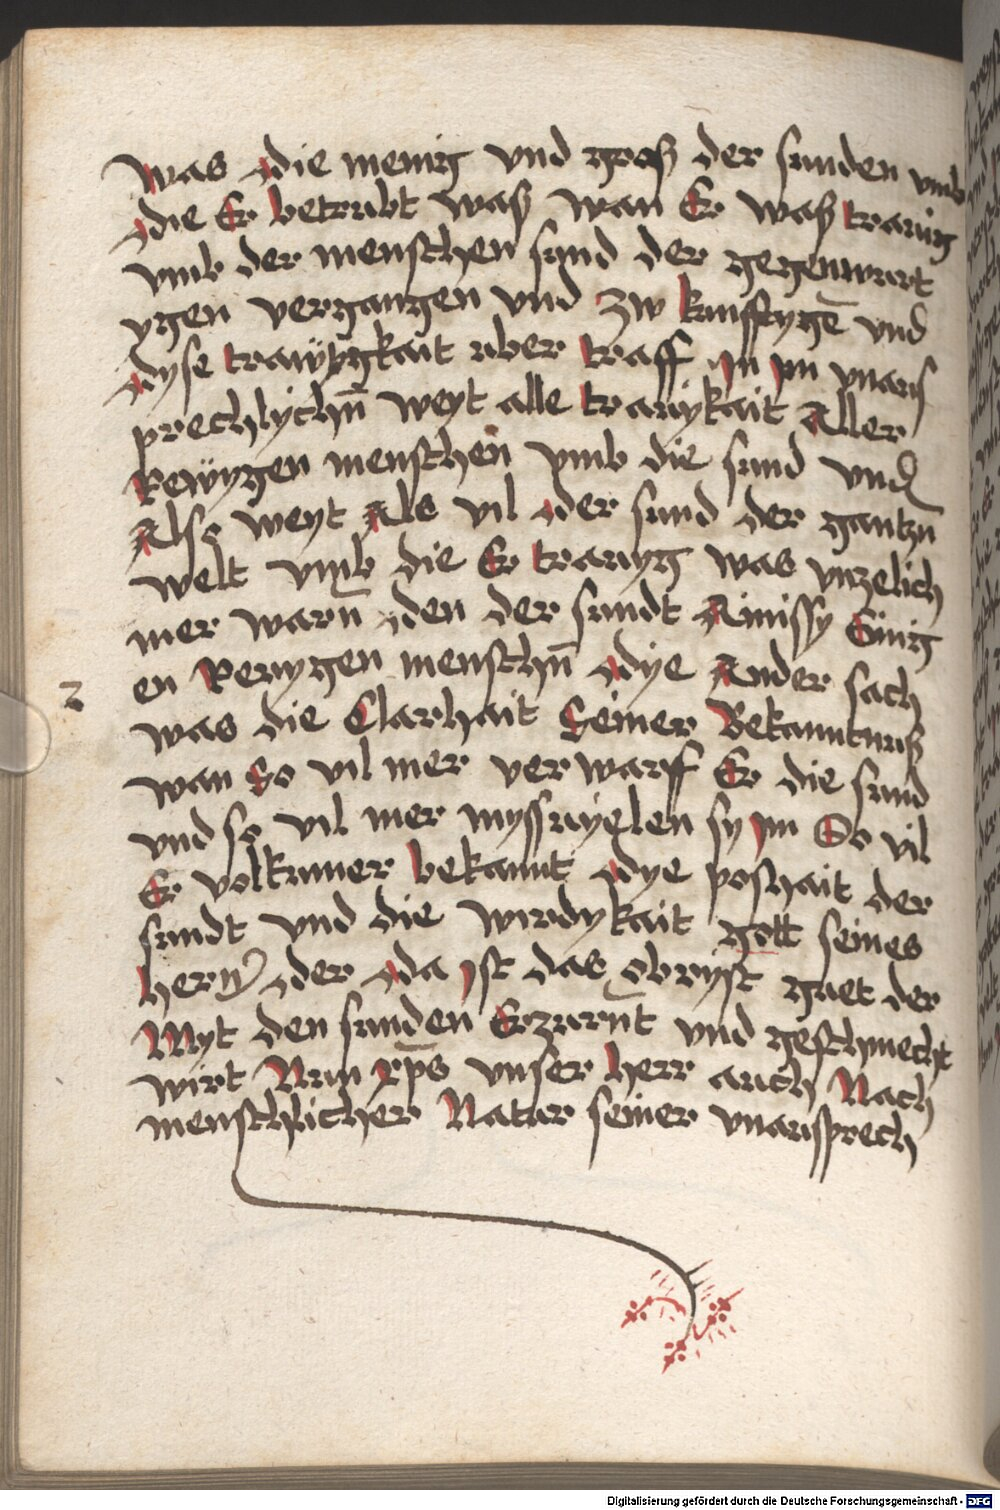 was die menig vnd groß der sunden vmb
die Er betrubt waß wan Er waß traurig
vmb der menschen sund der gegenwurt
ygen vergangen vnd zw kunfftygē vnd
dyse traurygkait uber traff in yn vnaus
prechlychn̄ weyt alle traurykait Aller
Rewygen menschen vmb die sund vnd
Also weyt Als vil der sund der gantzn̄
welt vmb die Er trauryg was vnzelich
mer warn̄ den der sundt Ainissy Einig
en Rewygen menschn̄ dye Ander sach
2
was die Clarhait Seiner Bekanntnuß
wan So vil mer verwarff Er die sund
vnd so vil mer myssuielen sy ym So vil
Er volkumer bekannt dye poshait der
sundt vnd die wirdykait gott seines
hern der da yst das obryst guet der
Myt den sunden Erzurnt vnd geschmecht
wirt Nun xp̄s vnser herr auch Nach
menschlicher Natur seiner vnaussprech
Digitalisierung gefördert durch die Deutsche Forschungsgemeinschaft - DFG